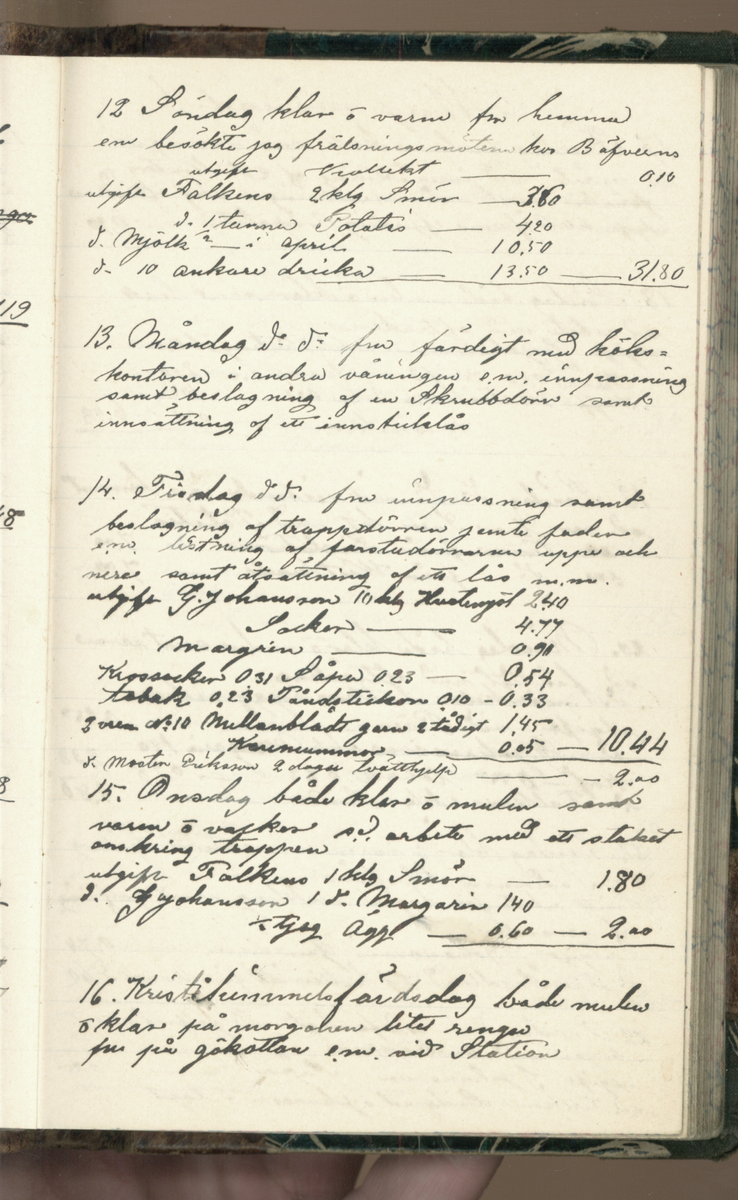 12 Söndag klar o varm fm hemma
em besökte jag frälsningsmötena hos Bäfverns
utgift — 0.10
utgift Falkens 2 klg Smör — 3.60
d. 1 tunna Potatis — 4.20
d. Mjölk i april — 10.50
d. 10 ankare dricka — 13.50 — 31.80
13. Måndag d. d. fm färdigt med köks=
kontoren i andra våningen e.m. innpassning
samt beslagning af en Skrubbdörr samt
innsättning af ett innstickslås
14. Tisdag d. d. fm innpassning samt
beslagning af trappdörren jemte foder
e.m. listning af farstudörrarna uppe och
nere samt åtsättning af ett lås m.m.
utgift G. Johansson 10 klg Hvetemjöl 2.40
Socker — 4.77
Margrin — 0.90
Krossocker 0.31 Såpa 0.23 — 0.54
tobak 0.23 Tändstickor 0.10 - 0.33
No 10 Mellanblådt garn 2 tådigt 1.45
Karemummor — 0.05 — 10.44
d. Moster Eriksson 2 dagar tvätthjelp — 2.00
15. Onsdag både klar o mulen samt
varm o vacker s.d. arbete med ett staket
omkring trappen
utgift Falkens 1 klg Smör — 1.80
d. G Johansson 1 d. Margarin 140
½ tjog Ägg — 0.60 — 2.00
16. Kristihimmelsfärdsdag både mulen
o klar på morgonen litet rengn
fm på gökottan e.m. vid Station